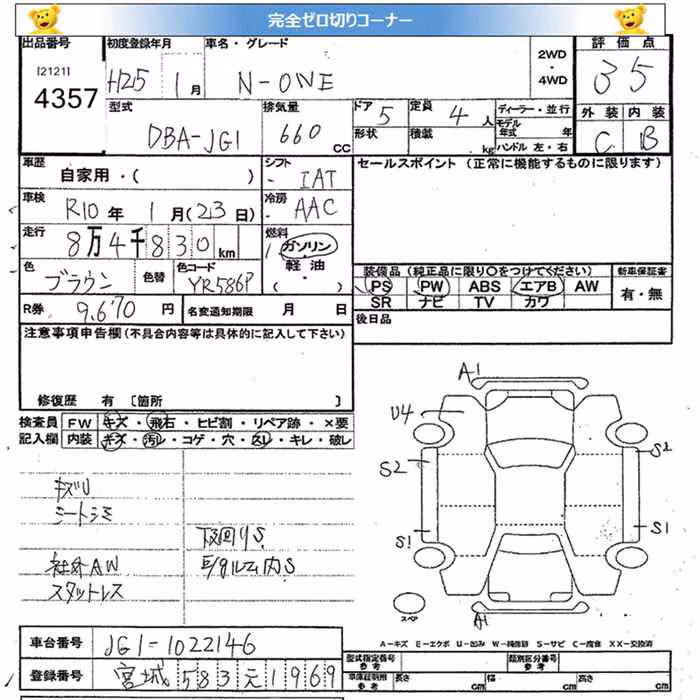 完全ゼロ切りコーナー
出品番号
[2121]
4357
初度登録年月
H25 1月
車名・グレード
N-ONE
2WD
・
4WD
評価点
35
外装 内装
C B
型式
DBA-JG1
排気量
660 CC
ドア 5
形状
定員 4 人
積載 kg
ディーラー・並行
モデル年式 年
ハンドル 左・右
車歴
自家用・( )
シフト
IAT
セールスポイント (正常に機能するものに限ります)
車検
R10年 1月(23日)
冷房
AAC
走行
8万4千830km
燃料
ガソリン
軽油
・( )
色
ブラウン
色替
色コード
YR586P
装備品(純正品に限り○をつけてください)
PS PW ABS エアB AW
SR ナビ TV カワ
新車保証書
有・無
R券 9,670 円
名変通知期限 月 日
後日品
注意事項申告欄(不具合内容等は具体的に記入して下さい)
修復歴 有 [箇所 ]
検査員
記入欄
FW キズ・飛石・ヒビ割・リペア跡・×要
内装 キズ・汚レ・コゲ・穴・スレ・キレ・破レ
キズU
シートシミ
社外AW
スタットレス
下回りS
E/gルーム内S
A1
U4
S2
S2
S1
S1
A1
スペア
A-キズ E-エクボ U-凹み W-補修跡 S-サビ C-腐食 XX-交換済
車台番号 JG1-1022146
登録番号 宮城 583 元 1969
型式指定番号
参考
類別区分番号
参考
車庫証明用
参考
長さ cm 幅 cm 高さ cm